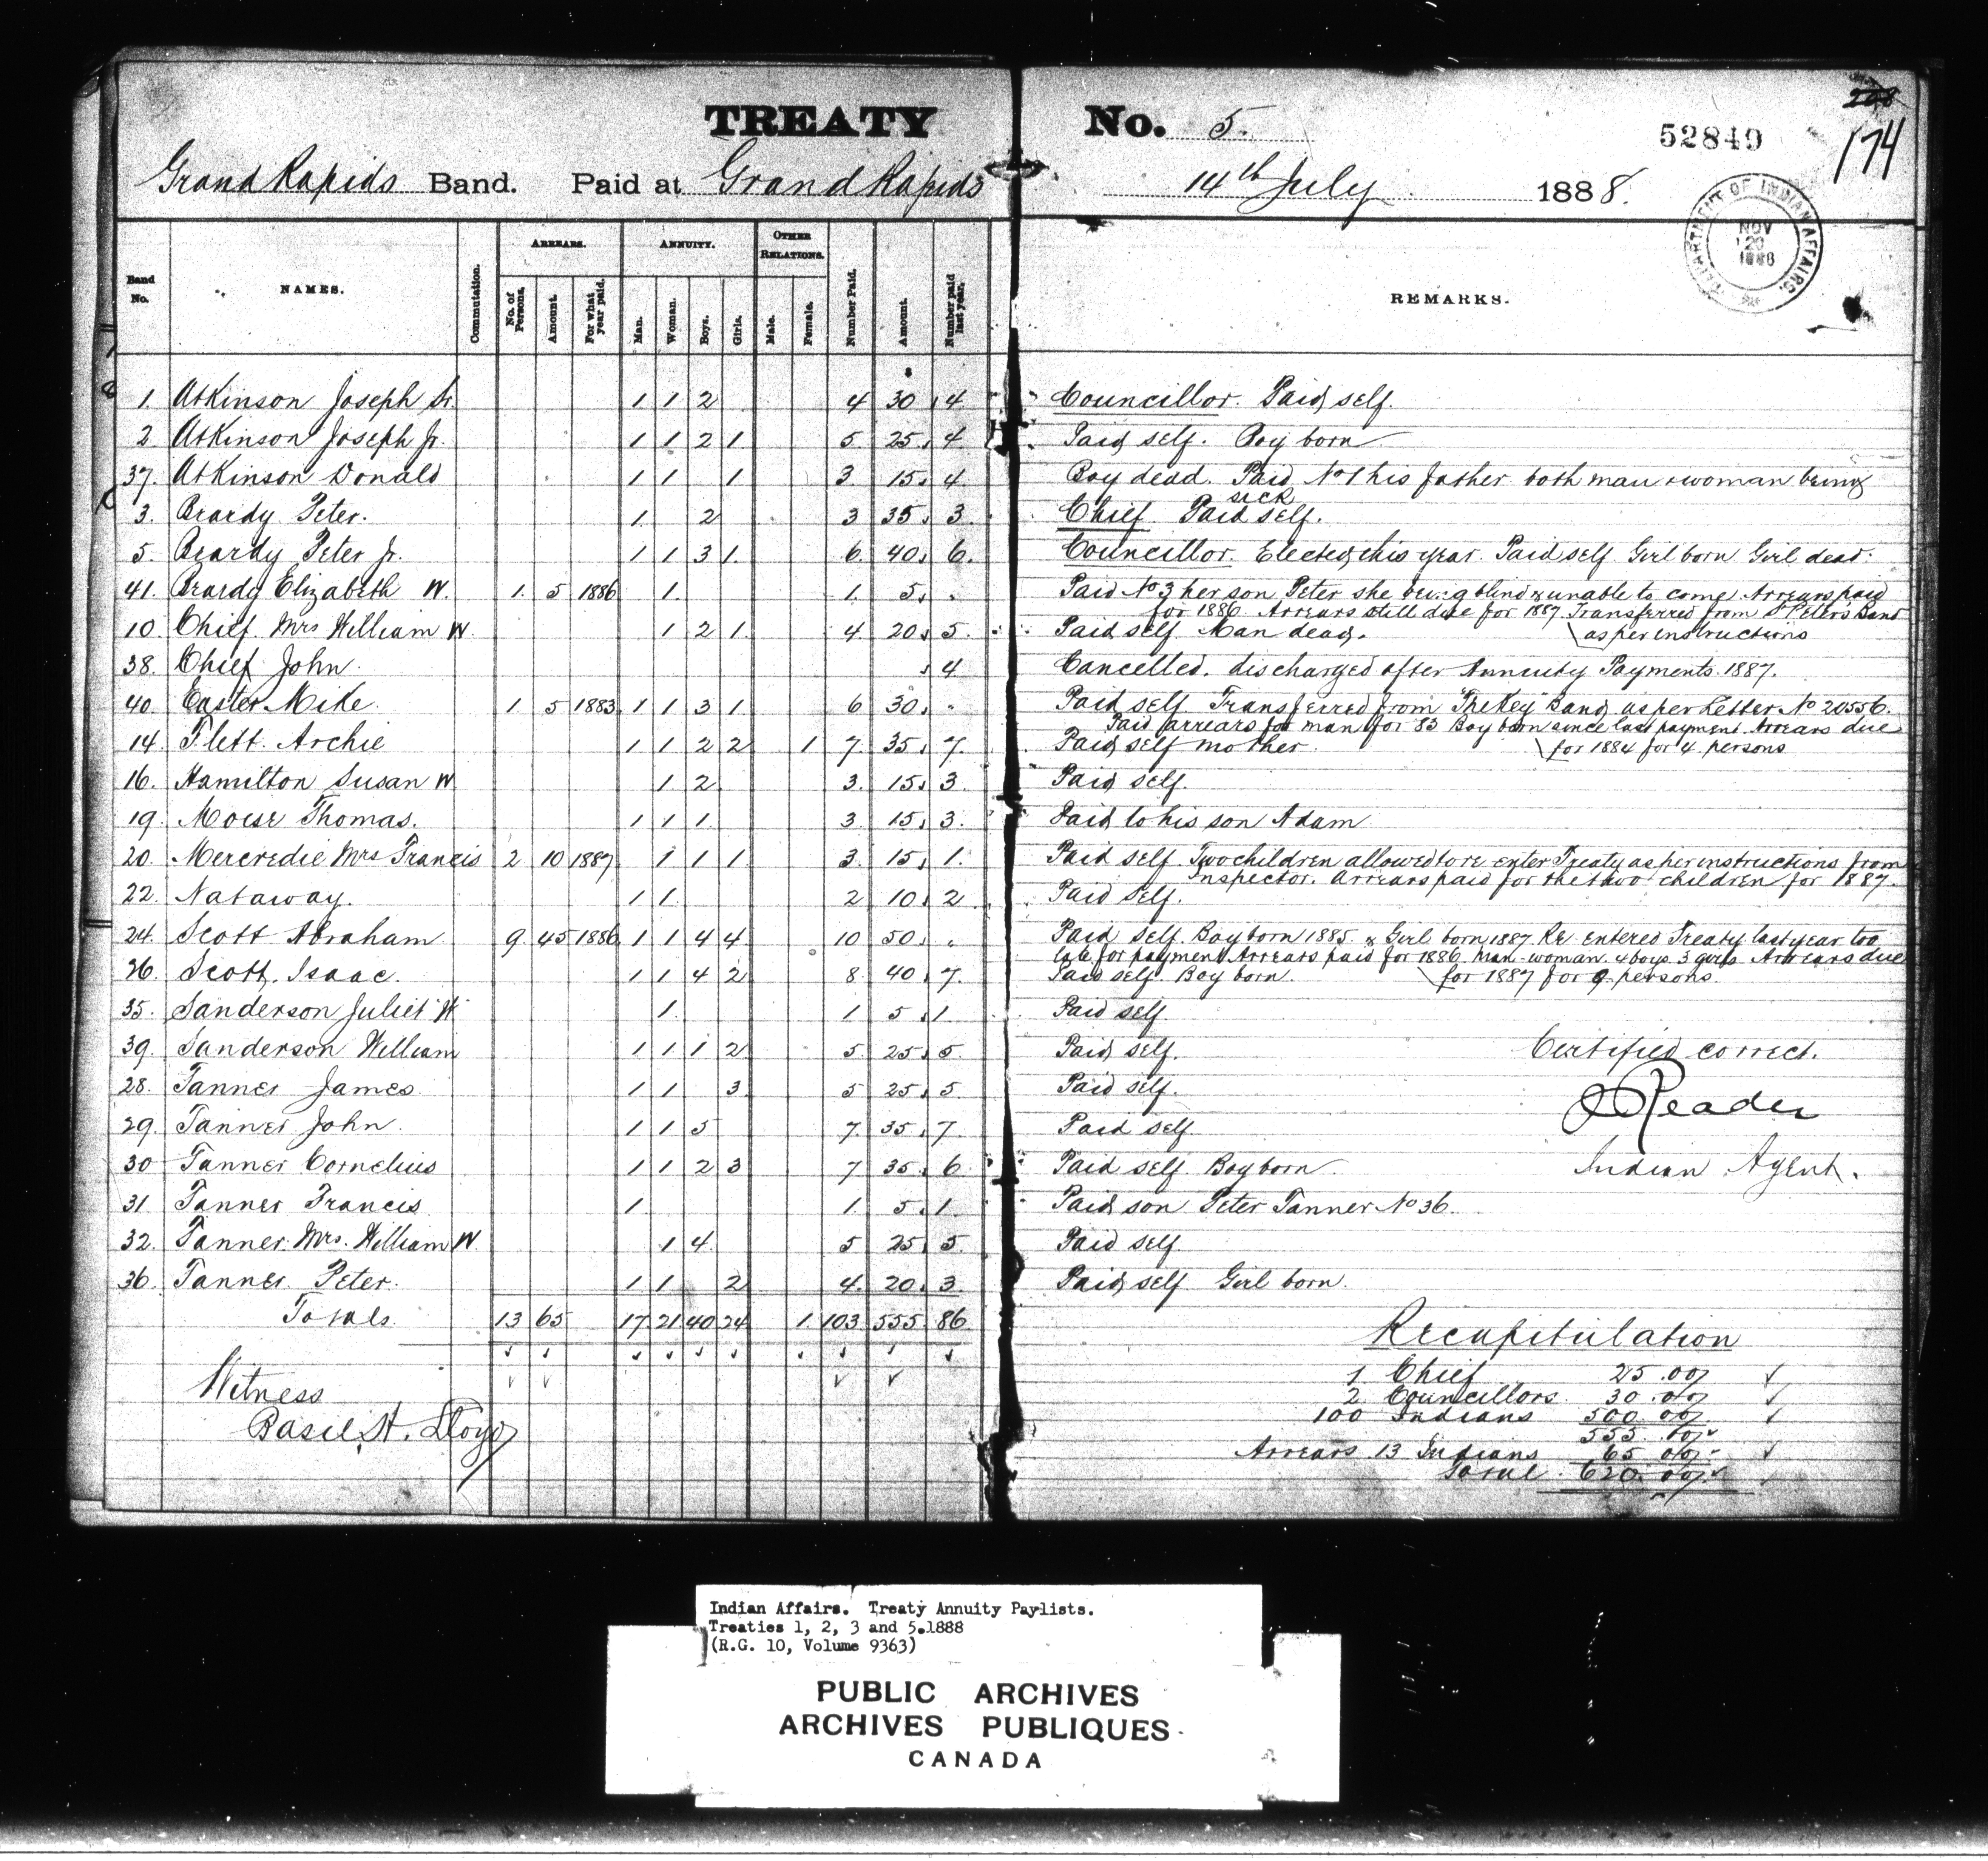 TREATY No. 5. 52849 174
Grand Rapids Band. Paid at Grand Rapids 14th July 1888.
DEPARTMENT OF INDIAN AFFAIRS. NOV 20 1888
Band No. NAMES. Commutation. ARREARS. No. of Persons. Amount. For what year paid. ANNUITY. Man. Woman. Boys. Girls. OTHER RELATIONS. Male. Female. Number Paid. Amount. Number paid last year. REMARKS.
1. Atkinson Joseph Sr. 1 1 2 4 30 4 Councillor. Paid self.
2. Atkinson Joseph Jr. 1 1 2 1 5. 25. 4 Paid self. Boy born
37. Atkinson Donald 1 1 1 3 15. 4 Boy dead. Paid No 1 his father both man & woman being sick
3. Beardy Peter. 1 2 3 35. 3. Chief Paid self.
5. Beardy Peter Jr. 1 1 3 1. 6. 40. 6. Councillor. Elected this year. Paid self Girl born Girl dead.
41. Beardy Elizabeth W. 1. 5 1886 1. 1. 5. " Paid No 3 her son Peter she being blind & unable to come Arrears paid
for 1886. Arrears still due for 1887. Transferred from St Peters Band
as per instructions
10. Chief Mrs William W. 1 2 1. 4 20. 5. Paid self. Man dead.
38. Chief John. 4 Cancelled. discharged after Annuity Payments 1887.
40. Easter Mike. 1. 5 1883 1 1 3 1 6 30. " Paid self Transferred from "The Key" Band as per Letter No 20556.
Paid arrears for man for 83 Boy born since last payment. Arrears due
for 1884 for 4 persons
14. Flett Archie 1 1 2 2 1 7. 35. 7. Paid self mother.
16. Hamilton Susan W 1 2 3. 15. 3. Paid self.
19. Moise Thomas. 1 1 1. 3. 15. 3. Paid to his son Adam
20. Mercredie Mrs Francis 2 10 1887 1 1 1 3. 15. 1. Paid self Two children allowed to re enter Treaty as per instructions from
Inspector. Arrears paid for the two children for 1887.
22. Nataway. 1 1. 2 10. 2 Paid self.
24. Scott Abraham 9 45 1886 1 1 4 4 10 50. " Paid self. Boy born 1885. & Girl born 1887. Re entered Treaty last year too
late for payment Arrears paid for 1886 Man - woman 4 boys 3 girls Arrears due
for 1887 for 9 persons.
26. Scott, Isaac. 1 1 4 2 8. 40. 7. Paid self. Boy born.
35. Sanderson Juliet W 1. 1 5. 1 Paid self.
39. Sanderson William 1 1 1 2 5. 25. 5. Paid self. Certified correct.
28. Tanner James 1 1 3 5 25. 5. Paid self.
J Reader
29. Tanner John. 1 1 5 7. 35. 7. Paid self.
30 Tanner Cornelius 1 1 2 3 7 35. 6. Paid self. Boy born. Indian Agent.
31 Tanner Francis 1 1. 5. 1. Paid son Peter Tanner No 36.
32. Tanner Mrs. William W. 1 4. 5 25. 5. Paid self.
36. Tanner Peter. 1 1 2 4. 20. 3. Paid self Girl born.
Totals. 13 65 17 21 40 24 1 103 555 86
Recapitulation
1 Chief 25.00
2 Councillors 30.00
100 Indians 500.00
555.00
Arrears 13 Indians 65.00
Total 620.00
Witness
Basil H. Lloyd
Indian Affairs. Treaty Annuity Paylists.
Treaties 1, 2, 3 and 5.1888
(R.G. 10, Volume 9363)
PUBLIC ARCHIVES
ARCHIVES PUBLIQUES
CANADA